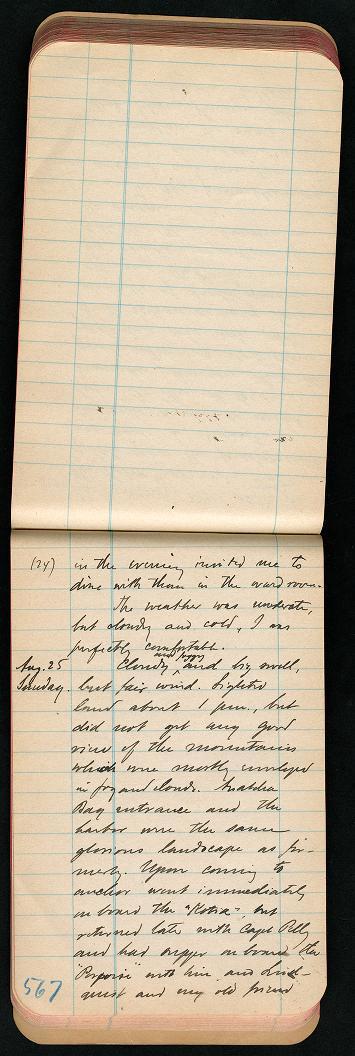 (24) in the evening invited me to
dine with them in the ward room.
The weather was moderate,
but cloudy and cold, I was
perfectly comfortable.
Aug. 25 Cloudy and foggy and big swell,
Sunday. but fair wind. Sighted
land about 1 p.m., but
did not get any good
view of the mountains
which were mostly enveloped
in fog and clouds. Unalaska
Bay entrance and the
harbor were the same
glorious landscape as for-
merly. Upon coming to
anchor went immediately
on board the "Kotik", but
returned late with Capt.
and had supper on board the
"Porpoise" with him and Lind-
quist and my old friend
567